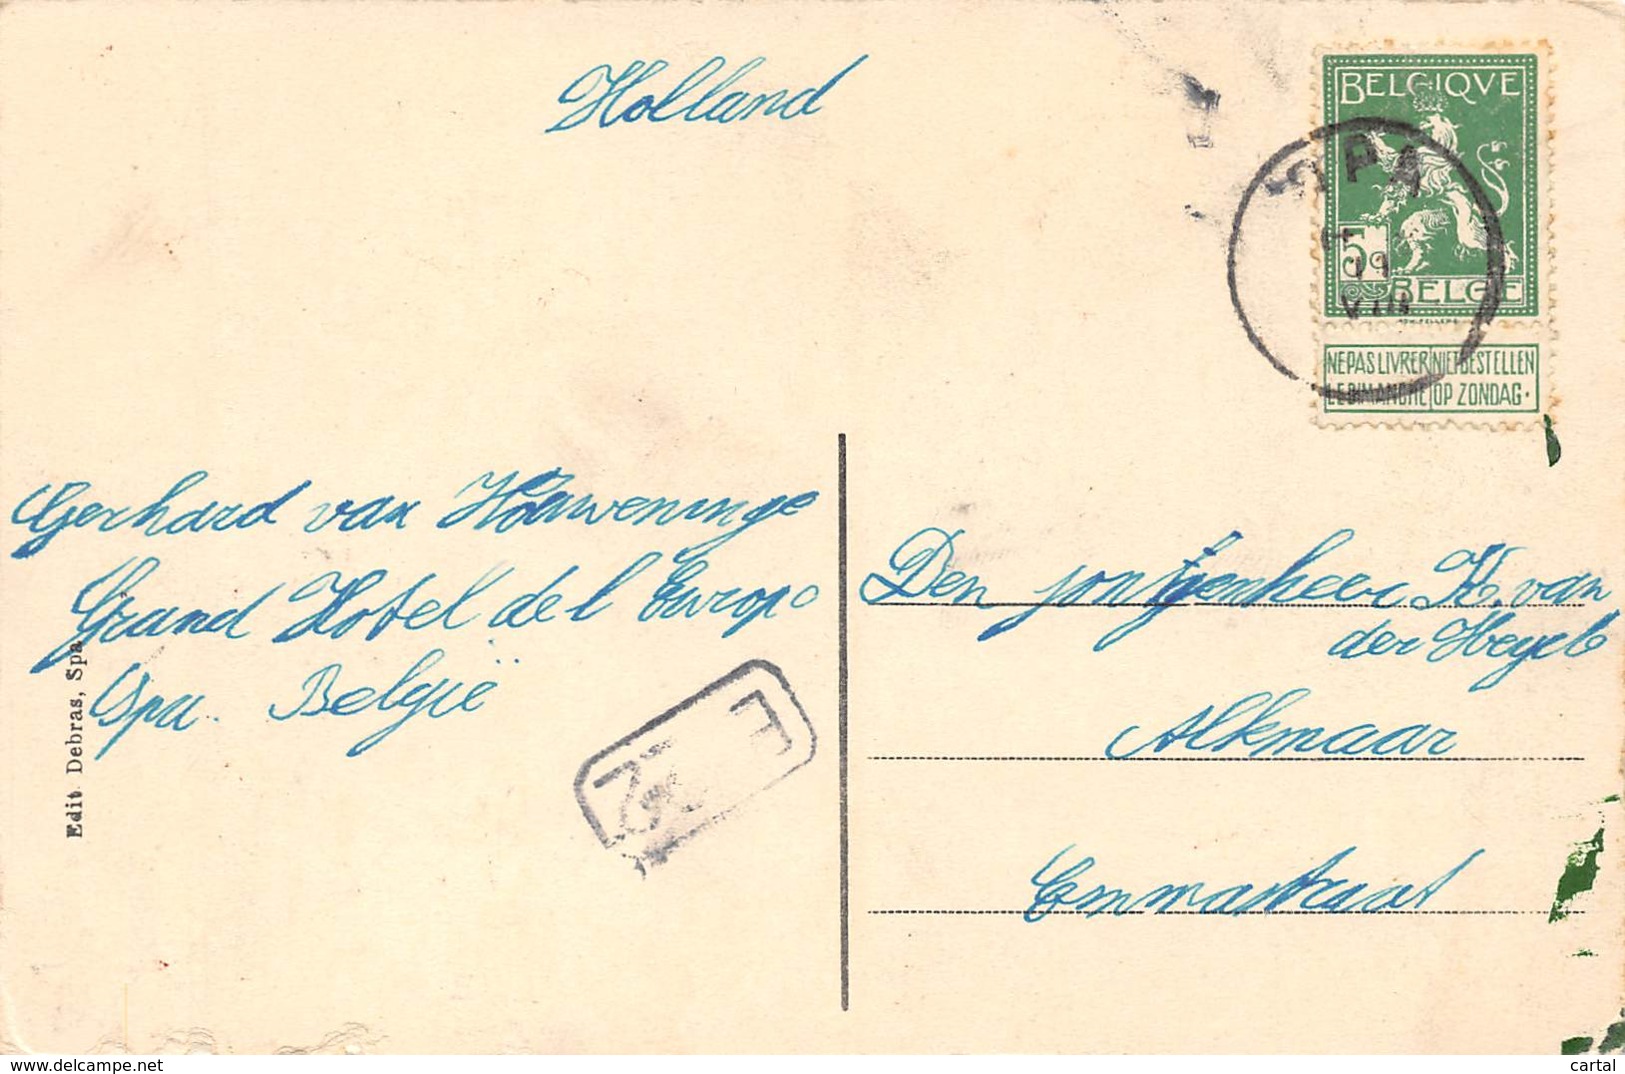 Holland
BELGIQVE
SPA
5c
19
VIII
BELGIE
NE PAS LIVRER NIET BESTELLEN
LE DIMANCHE OP ZONDAG.
Gerhard van Houweninge
Grand Hotel de l Europe
Spa. België
Den jongenheer K. van
der Heyel
Alkmaar
Emmastraat
Edit Debras, Spa
www.delcampe.net
cartal